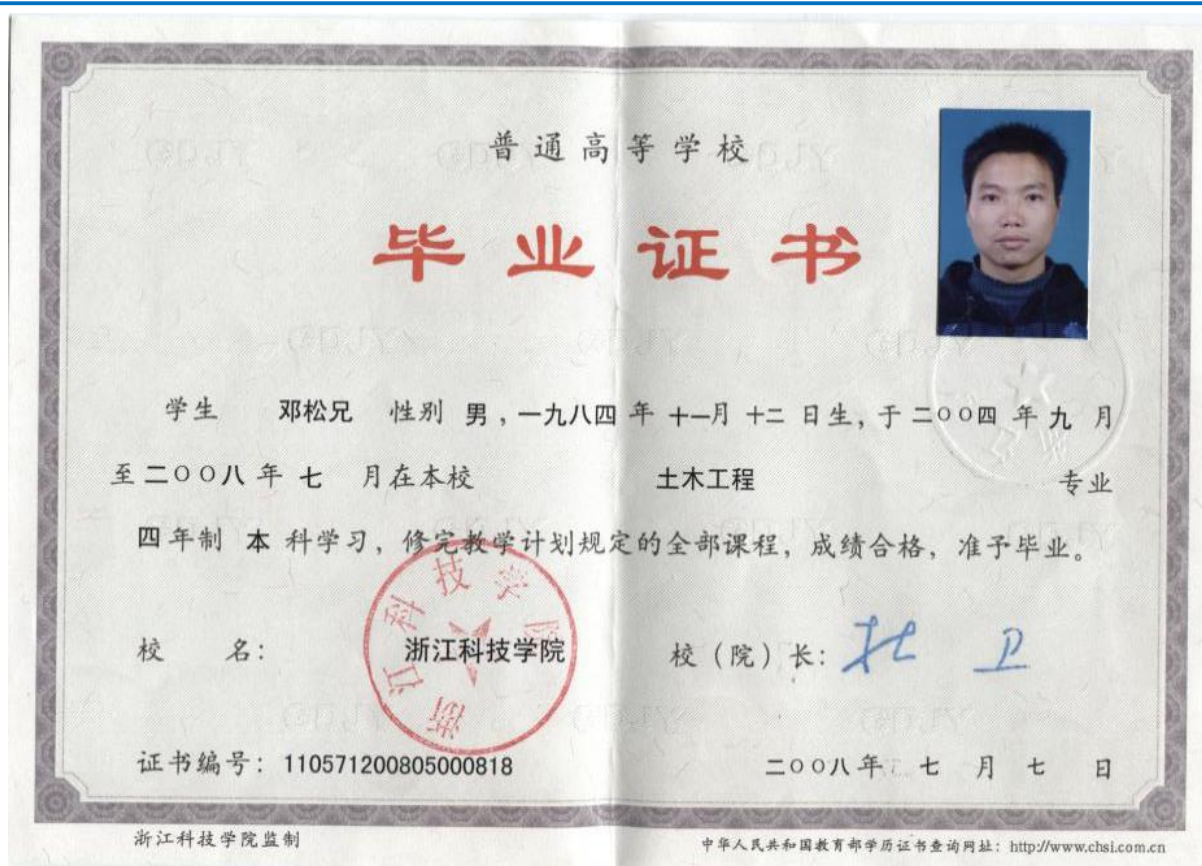 普通高等学校
毕业证书
学生 邓松兄 性别 男，一九八四 年 十一月 十二 日生，于 二〇〇四 年 九 月
至 二〇〇八 年 七 月在本校 土木工程 专业
四 年制 本 科学习，修完教学计划规定的全部课程，成绩合格，准予毕业。
浙江科技学院
校 名： 浙江科技学院 校（院）长： 杜 卫
证书编号：110571200805000818 二〇〇八 年 七 月 七 日
浙江科技学院监制 中华人民共和国教育部学历证书查询网址：http://www.chsi.com.cn